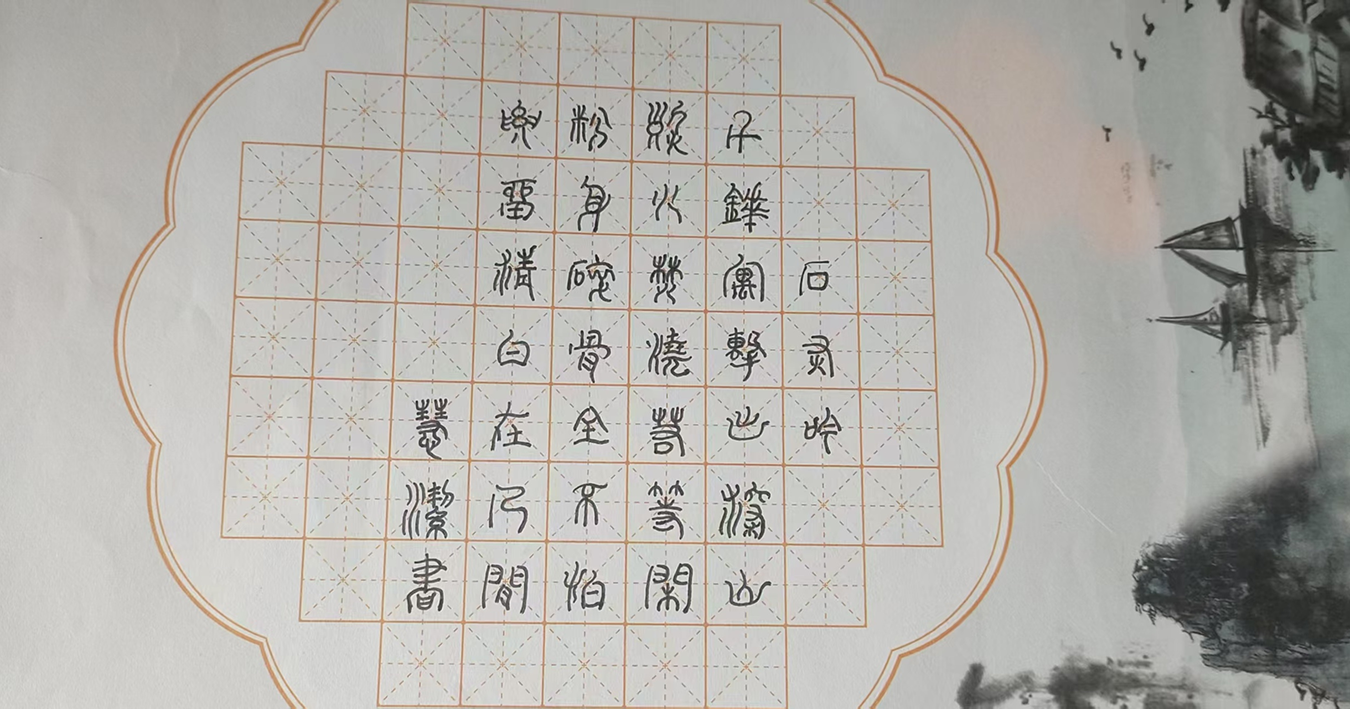 石灰吟
千錘萬擊出深山
烈火焚燒若等閑
粉身碎骨全不怕
要留清白在人間
慧潔書